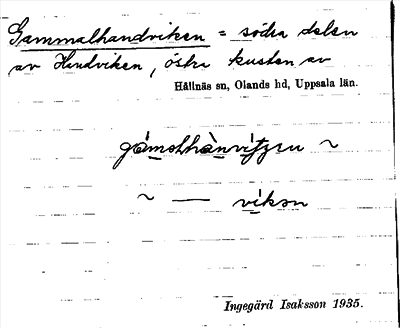 Gammalhandviken = södra delen
av Handviken, östra kusten av
Hållnäs sn, Olands hd, Uppsala län.
~ — vikən
Ingegärd Isaksson 1935.